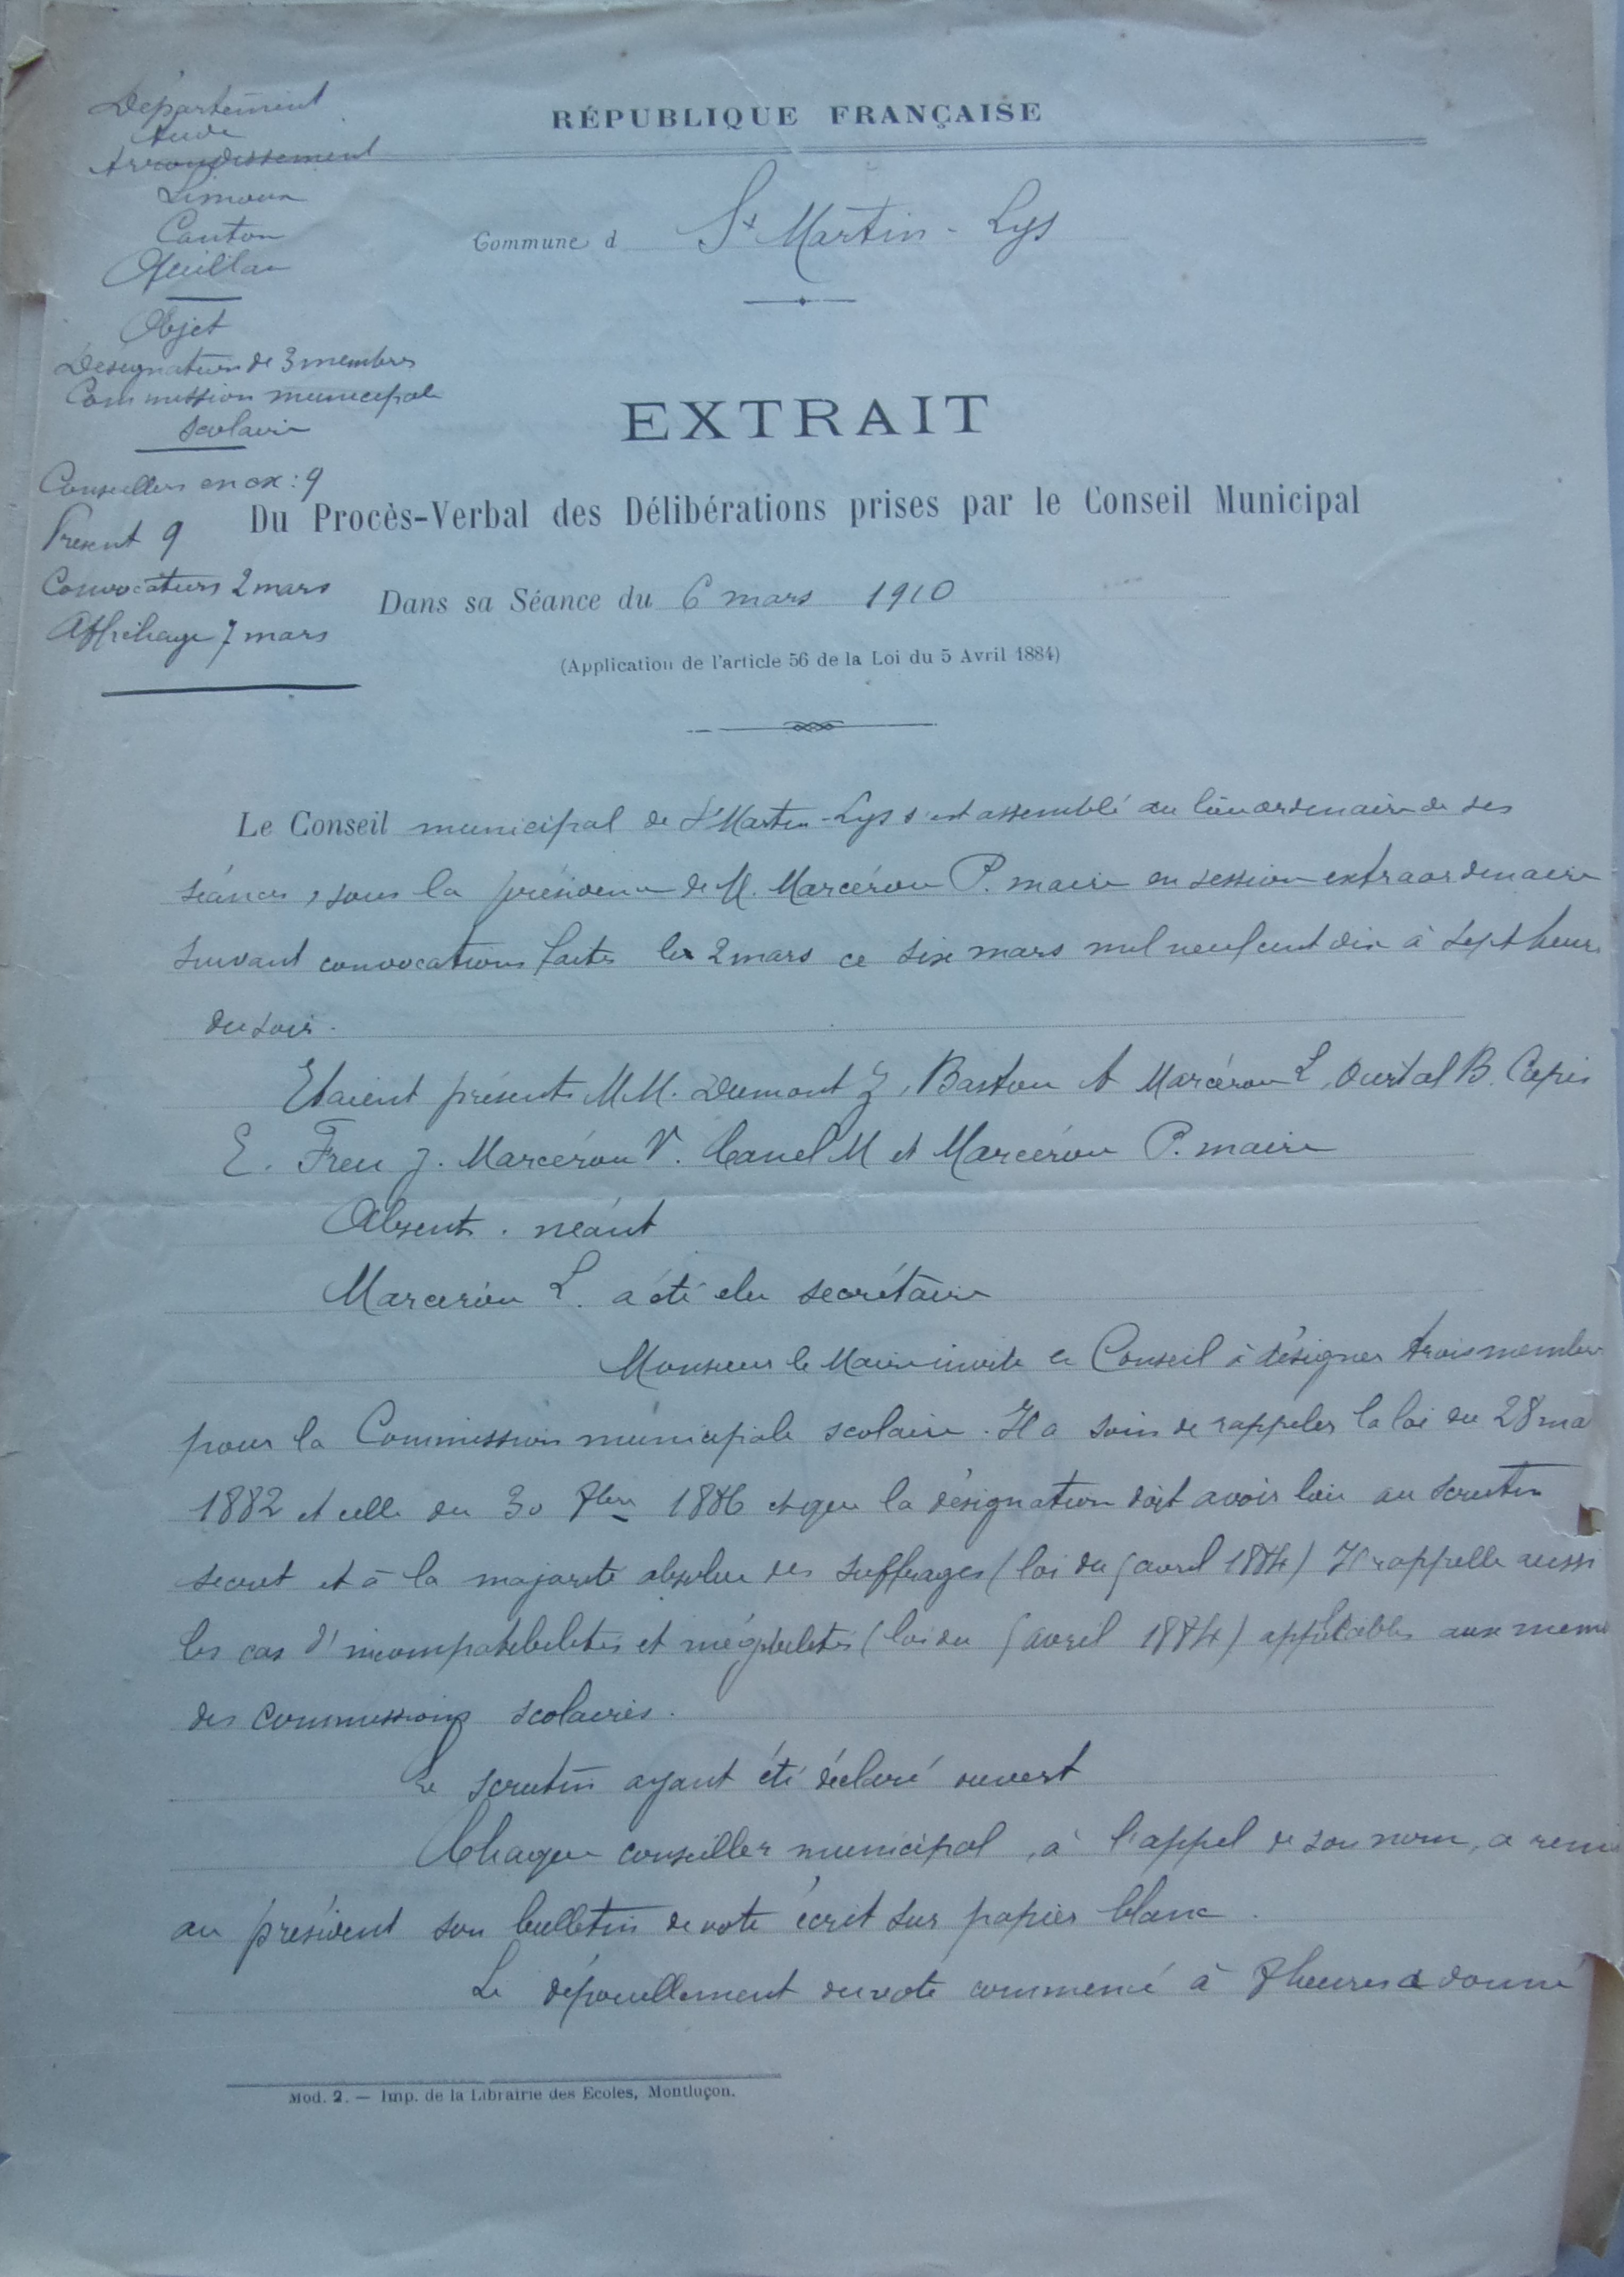 Département
Aude
Arrondissement
Limoux
Canton
Quillan
Objet
Désignation de 3 membres
Commission municipale
scolaire
Conseillers en ex : 9
Présent 9
Convocations 2 mars
Affichage 7 mars
RÉPUBLIQUE FRANÇAISE
Commune d St Martin-Lys
EXTRAIT
Du Procès-Verbal des Délibérations prises par le Conseil Municipal
Dans sa Séance du 6 mars 1910
(Application de l'article 56 de la Loi du 5 Avril 1884)
Le Conseil municipal de St Martin-Lys s'est assemblé au lieu ordinaire de ses
séances, sous la présidence de M. Marcérou P. maire en session extraordinaire
suivant convocations faites les 2 mars ce six mars mil neuf cent dix à sept heures
du soir.
Etaient présents MM. Dumont J, Bastou A Marcérou L, Ourtal B. Capis
E. Freu J. Marcérou V. Canel M et Marcérou P. maire
Absents. néant
Marcérou L. a été élu secrétaire
Monsieur le Maire invite le Conseil à désigner trois membres
pour la Commission municipale scolaire. Il a soin de rappeler la loi du 28 ma
1882 et celle du 30 8bre 1886 et que la désignation doit avoir lieu au scrutin
secret et à la majorité absolue des suffrages (loi du 5 avril 1884) Il rappelle aussi
les cas d'incompatibilités et inégibilités (loi du 5 avril 1884) applicables aux mem
des commissions scolaires.
Le scrutin ayant été déclaré ouvert
Chaque conseiller municipal, à l'appel de son nom, a remi
au président son bulletin de vote écrit sur papier blanc.
Le dépouillement du vote commencé à 8 heures a donné
Mod. 2. — Imp. de la Librairie des Ecoles, Montluçon.